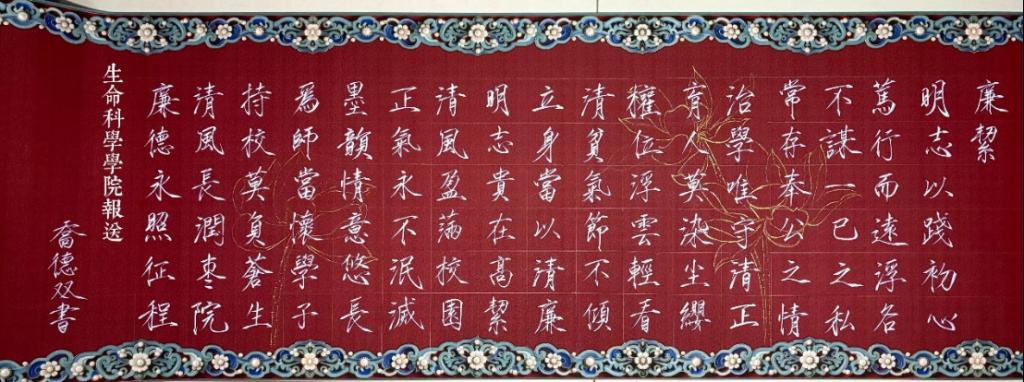 廉絜
明志以踐初心
篤行而遠浮名
不謀一己之私
常存奉公之情
治學唯守清正
育人莫染尘纓
權位浮雲輕看
清貧氣節不傾
立身當以清廉
明志貴在高絜
清風盈滿校園
正氣永不泯滅
墨韻情意悠長
為師當懷學子
持校莫負蒼生
清風長潤枣院
廉德永照征程
生命科學學院報送
喬德双書